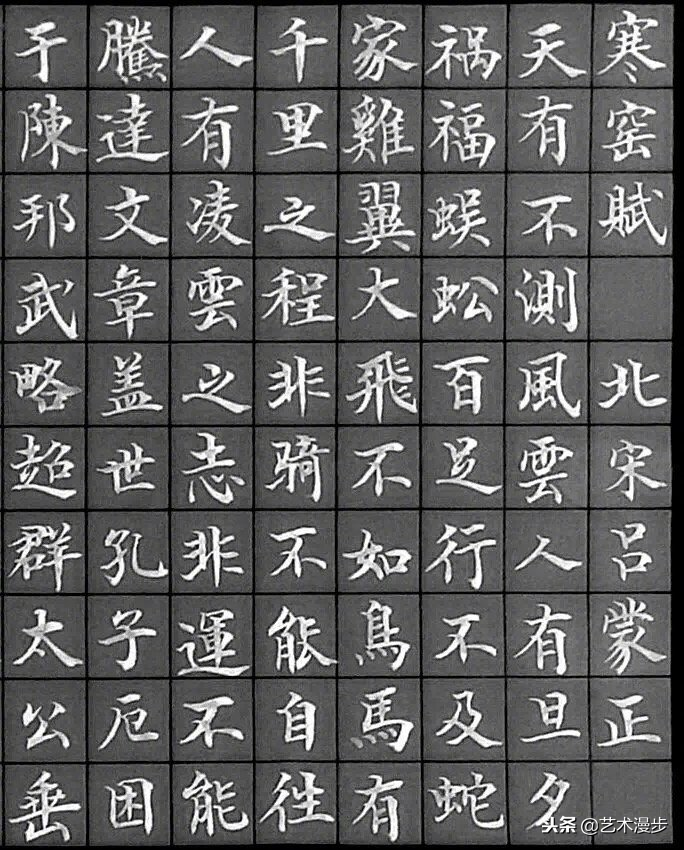 寒窑賦 北宋吕蒙正
天有不測風雲人有旦夕
祸福蜈蚣百足行不及蛇
家雞翼大飛不如鳥馬有
千里之程非骑不能自往
人有凌雲之志非運不能
騰達文章盖世孔子厄困
于陳邦武略超群太公垂
头条 @艺术漫步